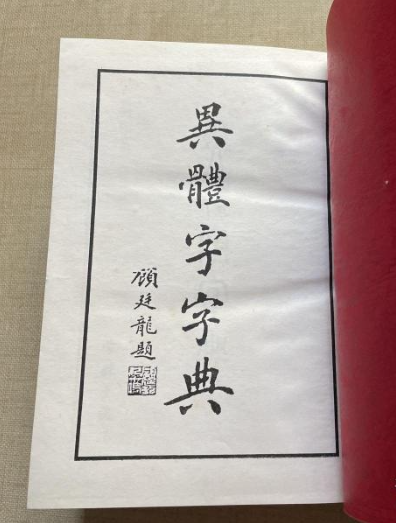 異體字字典
顧廷龍題